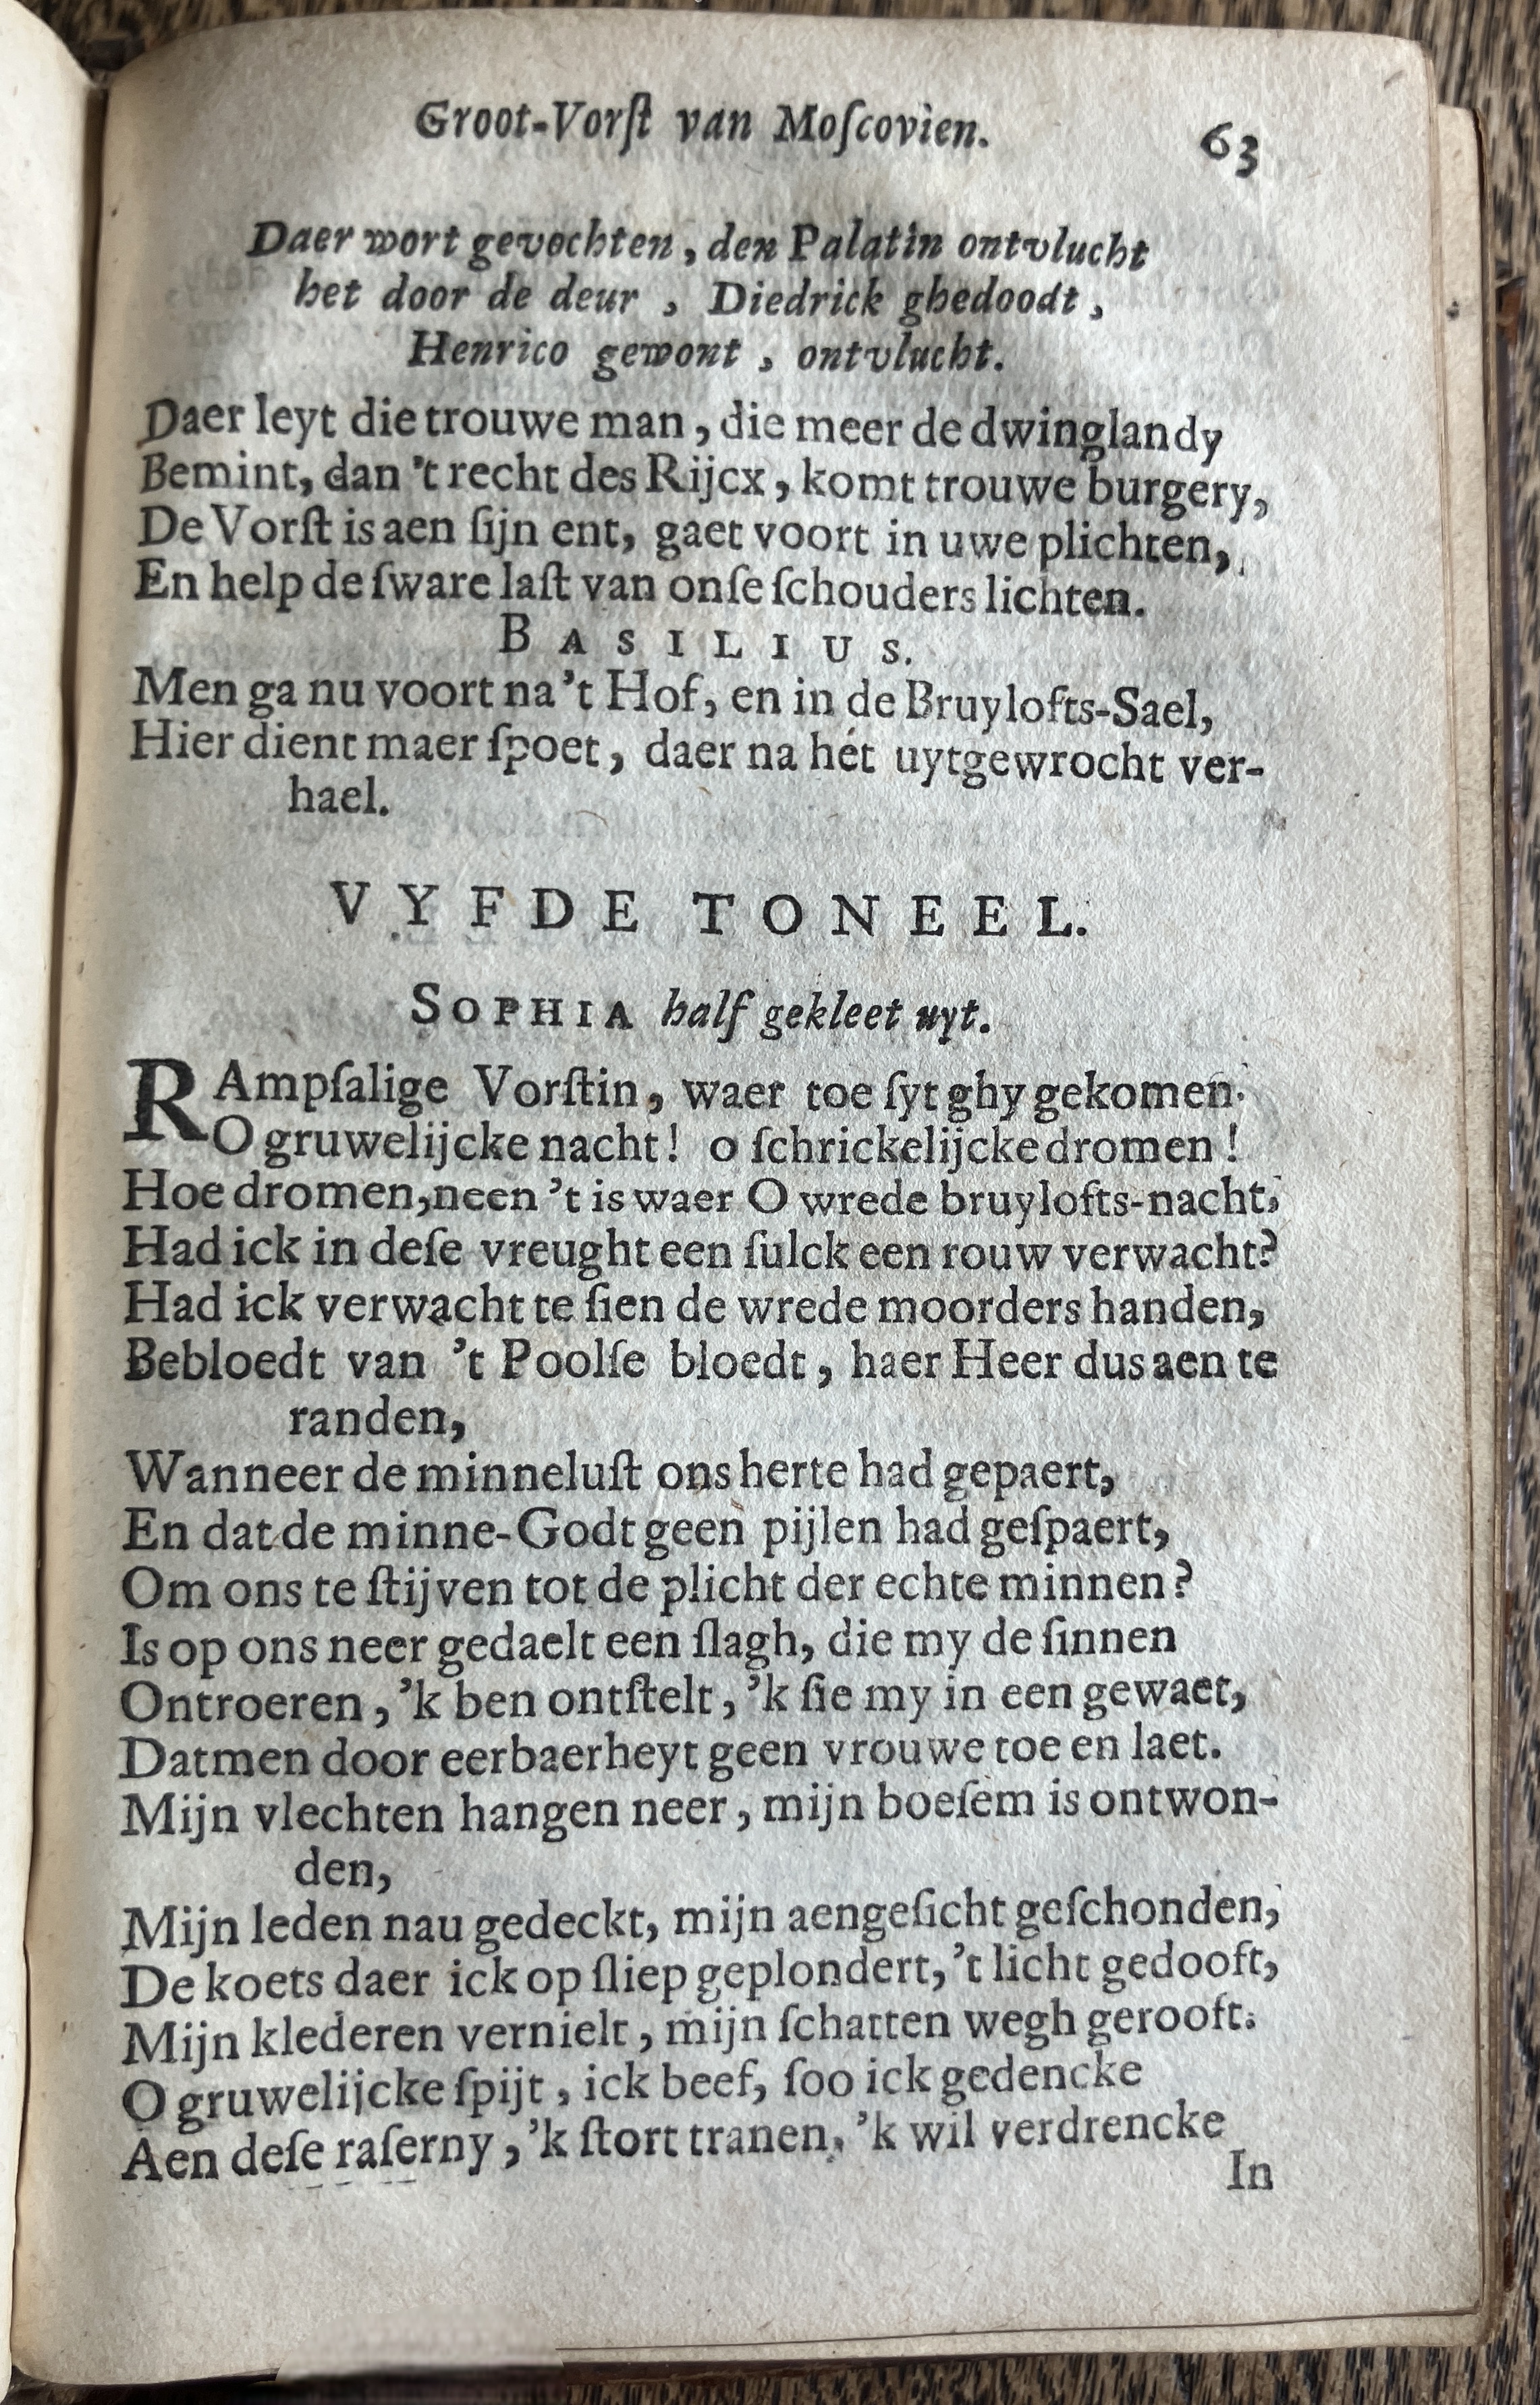 Groot-Vorſt van Moſcovien. 63
Daer wort gevochten, den Palatin ontvlucht
het door de deur, Diedrick ghedoodt,
Henrico gewont, ontvlucht.
Daer leyt die trouwe man, die meer de dwinglandy
Bemint, dan 't recht des Rijcx, komt trouwe burgery,
De Vorſt is aen ſijn ent, gaet voort in uwe plichten,
En help de ſware laſt van onſe ſchouders lichten.
BASILIUS.
Men ga nu voort na 't Hof, en in de Bruylofts-Sael,
Hier dient maer ſpoet, daer na hét uytgewrocht ver-
hael.
VYFDE TONEEL.
SOPHIA half gekleet uyt.
RAmpſalige Vorſtin, waer toe ſyt ghy gekomen.
O gruwelijcke nacht! o ſchrickelijcke dromen!
Hoe dromen, neen 't is waer O wrede bruylofts-nacht,
Had ick in deſe vreught een ſulck een rouw verwacht?
Had ick verwacht te ſien de wrede moorders handen,
Bebloedt van 't Poolſe bloedt, haer Heer dus aen te
randen,
Wanneer de minneluſt ons herte had gepaert,
En dat de minne-Godt geen pijlen had geſpaert,
Om ons te ſtijven tot de plicht der echte minnen?
Is op ons neer gedaelt een ſlagh, die my de ſinnen
Ontroeren, 'k ben ontſtelt, 'k ſie my in een gewaet,
Datmen door eerbaerheyt geen vrouwe toe en laet.
Mijn vlechten hangen neer, mijn boeſem is ontwon-
den,
Mijn leden nau gedeckt, mijn aengeſicht geſchonden,
De koets daer ick op ſliep geplondert, 't licht gedooft,
Mijn klederen vernielt, mijn ſchatten wegh gerooft.
O gruwelijcke ſpijt, ick beef, ſoo ick gedencke
Aen deſe raſerny, 'k ſtort tranen, 'k wil verdrencke
In